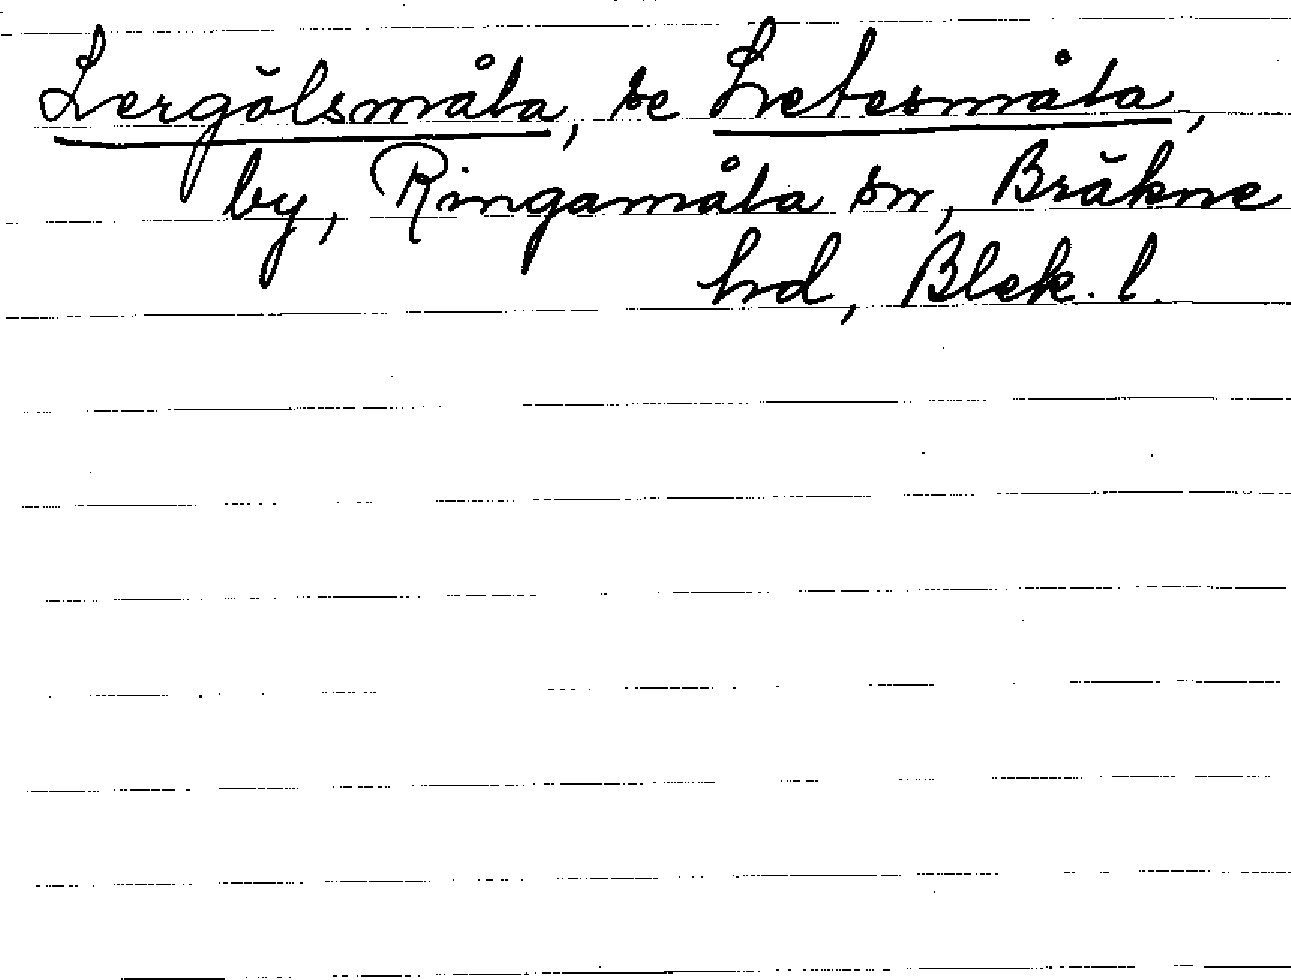 Lergölsmåla, se
by, Ringamåla sn, Bräkne
hd, Blek. l.